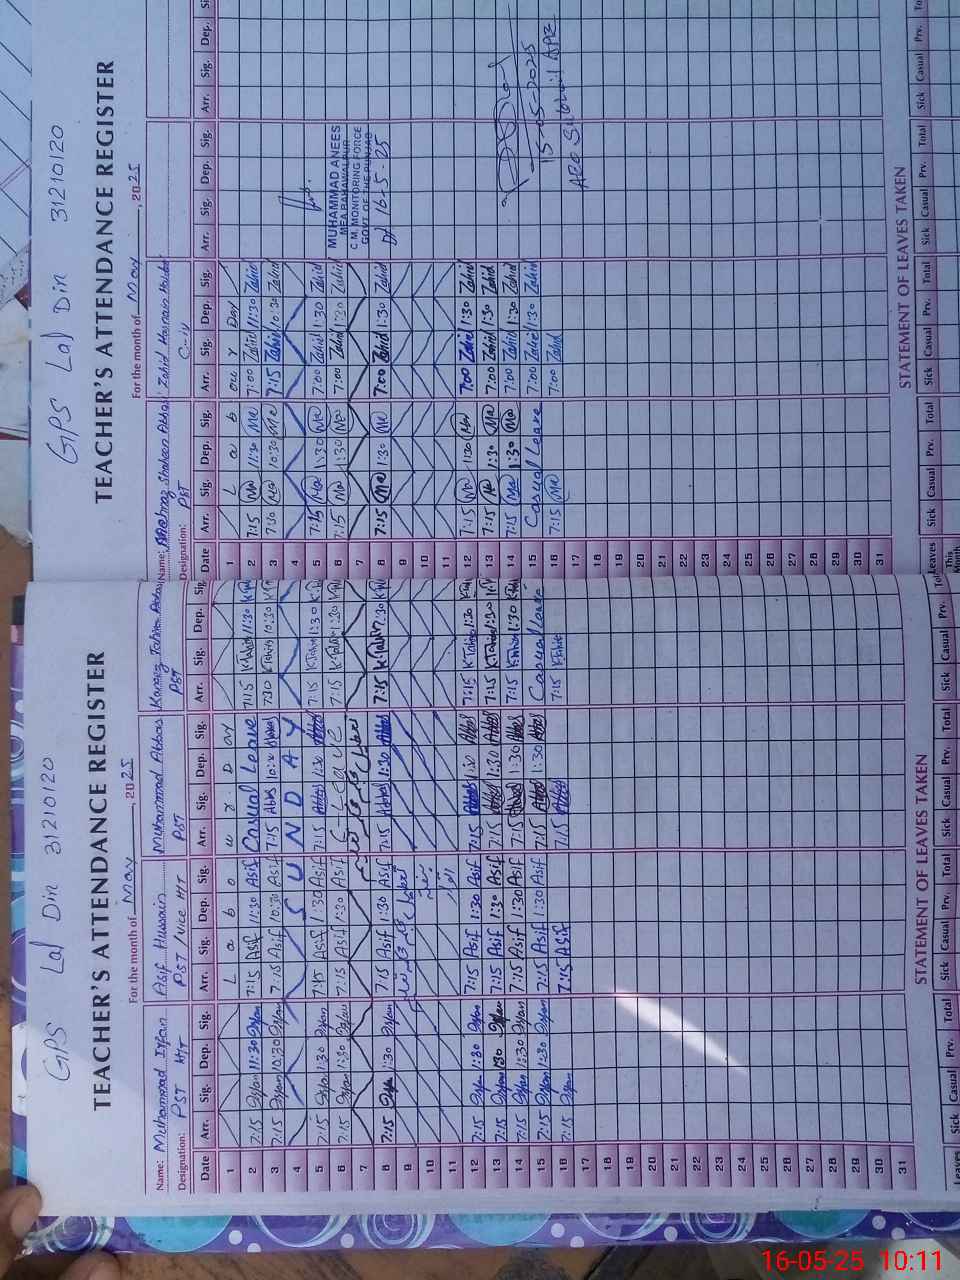 GPS Lal Din 31210120
TEACHER'S ATTENDANCE REGISTER
For the month of May, 2025
Name: Muhammad Irfan Asif Hussain Muhammad Abbas Kaneez Tahira
Designation: PST HT PST/Vice HT PST PST
Date Arr. Sig. Dep. Sig. Arr. Sig. Dep. Sig. Arr. Sig. Dep. Sig. Arr. Sig. Dep. Sig.
1 L a b o u r D ay
2 7:15 Irfan 11:30 Irfan 7:15 Asif 11:30 Asif Casual Leave 7:15 K.Tahira 11:30
3 7:15 Irfan 10:30 Irfan 7:15 Asif 10:30 Asif 7:15 Abbas 10:30 Abbas 7:30 K.Tahira 10:30
4 S U N D A Y
5 7:15 Irfan 1:30 Irfan 7:15 Asif 1:30 Asif 7:15 Abbas 1:30 Abbas 7:15 K.Tahira 1:30
6 7:15 Irfan 1:30 Irfan 7:15 Asif 1:30 Asif C-Leave 7:15 K.Tahira 1:30
7
8 7:15 Irfan 1:30 Irfan 7:15 Asif 1:30 Asif 7:15 Abbas 1:30 Abbas 7:15 K.Tahira 1:30
9
10
11
12 7:15 Irfan 1:30 Irfan 7:15 Asif 1:30 Asif 7:15 Abbas 1:30 Abbas 7:15 K.Tahira 1:30
13 7:15 Irfan 1:30 Irfan 7:15 Asif 1:30 Asif 7:15 Abbas 1:30 Abbas 7:15 K.Tahira 1:30
14 7:15 Irfan 1:30 Irfan 7:15 Asif 1:30 Asif 7:15 Abbas 1:30 Abbas 7:15 K.Tahira 1:30
15 7:15 Irfan 1:30 Irfan 7:15 Asif 1:30 Asif 7:15 Abbas 1:30 Abbas Casual Leave
16 7:15 Irfan 7:15 Asif 7:15 Abbas 7:15 K.Tahira
17
18
19
20
21
22
23
24
25
26
27
28
29
30
31
STATEMENT OF LEAVES TAKEN
Leaves Sick Casual Prv. Total Sick Casual Prv. Total Sick Casual Prv. Total Sick Casual
GPS Lal Din 31210120
TEACHER'S ATTENDANCE REGISTER
For the month of May, 2025
Name: Mehnaz Shaheen Zahid Hasnain
Designation: PST C-IV
Date Arr. Sig. Dep. Sig. Arr. Sig. Dep. Sig. Arr. Sig. Dep. Sig. Arr. Sig. Dep.
1 L a b ou r Day
2 7:15 Ma 11:30 Ma 7:00 Zahid 11:30 Zahid
3 7:30 Ma 10:30 Ma 7:15 Zahid 10:30 Zahid
4
5 7:15 Ma 1:30 Ma 7:00 Zahid 1:30 Zahid
6 7:15 Ma 1:30 Ma 7:00 Zahid 1:30 Zahid
7
8 7:15 Ma 1:30 Ma 7:00 Zahid 1:30 Zahid
9
10
11
12 7:15 Ma 1:30 Ma 7:00 Zahid 1:30 Zahid
13 7:15 Ma 1:30 Ma 7:00 Zahid 1:30 Zahid
14 7:15 Ma 1:30 Ma 7:00 Zahid 1:30 Zahid
15 Casual Leave 7:00 Zahid 1:30 Zahid
16 7:15 Ma 7:00 Zahid
17
18
19
20
21
22
23
24
25
26
27
28
29
30
31
MUHAMMAD ANEES
MEA BAHAWALPUR
C.M. MONITORING FORCE
GOVT OF THE PUNJAB
16-5-25
15-05-2025
STATEMENT OF LEAVES TAKEN
Leaves Sick Casual Prv. Total Sick Casual Prv. Total Sick Casual Prv. Total Sick Casual Prv.
This Month
16-05-25 10:11